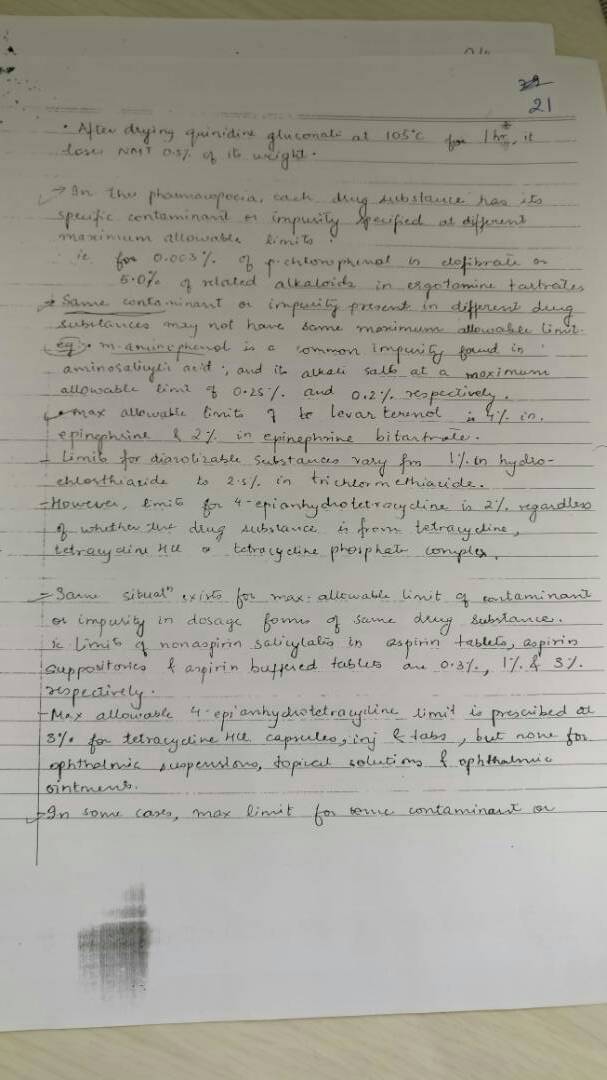 21
• After drying quinidine gluconate at 105°C for 1 hr, it
loses NMT 0.5% of its weight.
→ In the pharmacopoeia, each drug substance has its
specific contaminant or impurity specified at different
maximum allowable limits.
ie for 0.003% of p-chlorophenol in clofibrate or
5.0% of related alkaloids in ergotamine tartrates
→ Same contaminant or impurity present in different drug
substances may not have same maximum allowable limit.
eg:• m-aminophenol is a common impurity found in
aminosalicylic acid, and its alkali salts at a maximum
allowable limit of 0.25% and 0.2% respectively.
• max allowable limits of levarterenol is 4% in
epinephrine & 2% in epinephrine bitartrate.
- Limits for diazotizable substances vary frm 1% in hydro-
chlorthiazide to 2.5% in trichlormethiazide.
- However, limits for 4-epianhydrotetracycline is 2% regardless
of whether the drug substance is from tetracycline,
tetracycline HCl or tetracycline phosphate complex.
- Same situatn exists for max. allowable limit of contaminant
or impurity in dosage forms of same drug substance.
ie Limits of nonaspirin salicylates in aspirin tablets, aspirin
suppositories & aspirin buffered tablets are 0.3%, 1% & 3%.
respectively.
- Max allowable 4-epianhydrotetracycline limit is prescribed at
3% for tetracycline HCl capsules, inj & tabs, but none for
ophthalmic suspensions, topical solutions & ophthalmic
ointments.
- In some cases, max limit for some contaminant or